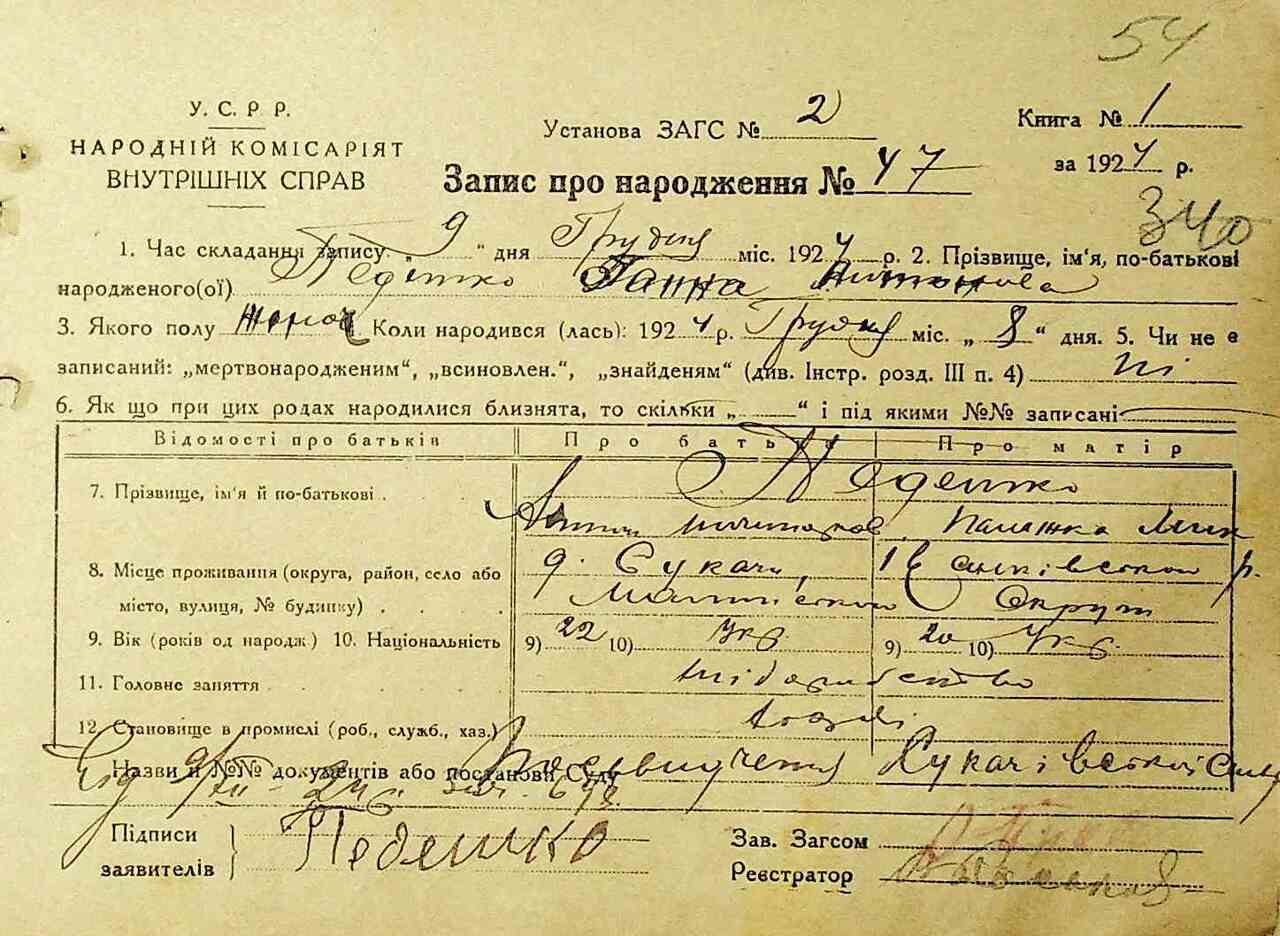 54
У. С. Р Р.
НАРОДНІЙ КОМІСАРІЯТ
ВНУТРІШНІХ СПРАВ
Установа ЗАГС № 2
Книга № 1
за 1924 р.
Запис про народження № 47
340
1. Час складання запису „ 9 “ дня Грудня міс. 1924 р. 2. Прізвище, ім'я, по-батькові
народженого(ої) Педешко Ганна Антонова
3. Якого полу жіноч Коли народився (лась): 1924 р. Грудня міс. „ 8 “ дня. 5. Чи не є
записаний: „мертвонародженим“, „всиновлен.“, „знайденям“ (див. Інстр. розд. III п. 4) ні
6. Як що при цих родах народилися близнята, то скільки „ “ і під якими №№ записані
Відомості про батьків Про батька Про матір
7. Прізвище, ім'я й по-батькові Педешко
Антон
8. Місце проживання (округа, район, село або с. Сукачі, Іванківського р.
місто, вулиця, № будинку) Округи
9. Вік (років од народж) 10. Національність 9) 22 10) Укр. 9) 20 10) Укр.
11. Головне заняття
12. Становище в промислі (роб., служб., хаз.)
Назви й №№ документів або постанови Суду Посвидчення Сукачівської
від 9/XII - 24 р.
Підписи
заявителів Педешко
Зав. Загсом
Реєстратор